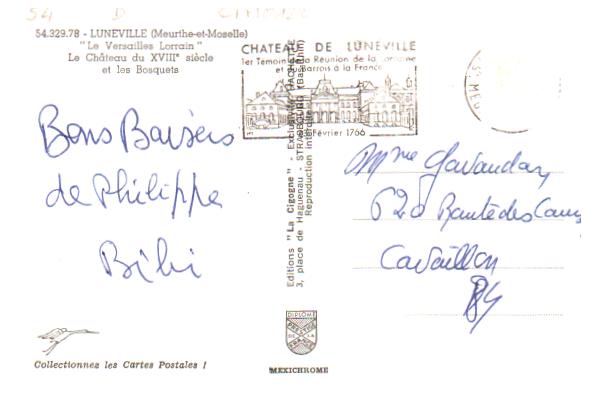 54 D
54.329.78 - LUNEVILLE (Meurthe-et-Moselle)
"Le Versailles Lorrain"
Le Château du XVIIIe siècle
et les Bosquets
CHATEAU DE LUNÉVILLE
1er Témoin de la Réunion de la Lorraine
et du Barrois à la France
Février 1766
MEU
Bons Baisers
de Philippe
Bibi
Editions "La Cigogne" - Exclusivité HACHETTE
3, place de Haguenau - STRASBOURG (Bas-Rhin)
Reproduction interdite
Mme Gavaudan
620 Route des
Cavaillon
84
DIPLOME
PRESTIGE
DE LA
FRANCE
Collectionnez les Cartes Postales !
MEXICHROME